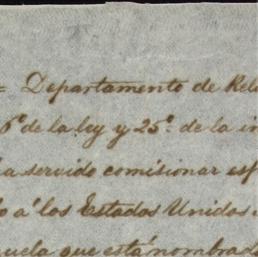 = Departamento de Rel
6º de la ley y 25º de la in
a servido comisionar esp
o á los Estados Unidos
uela que está nombrad